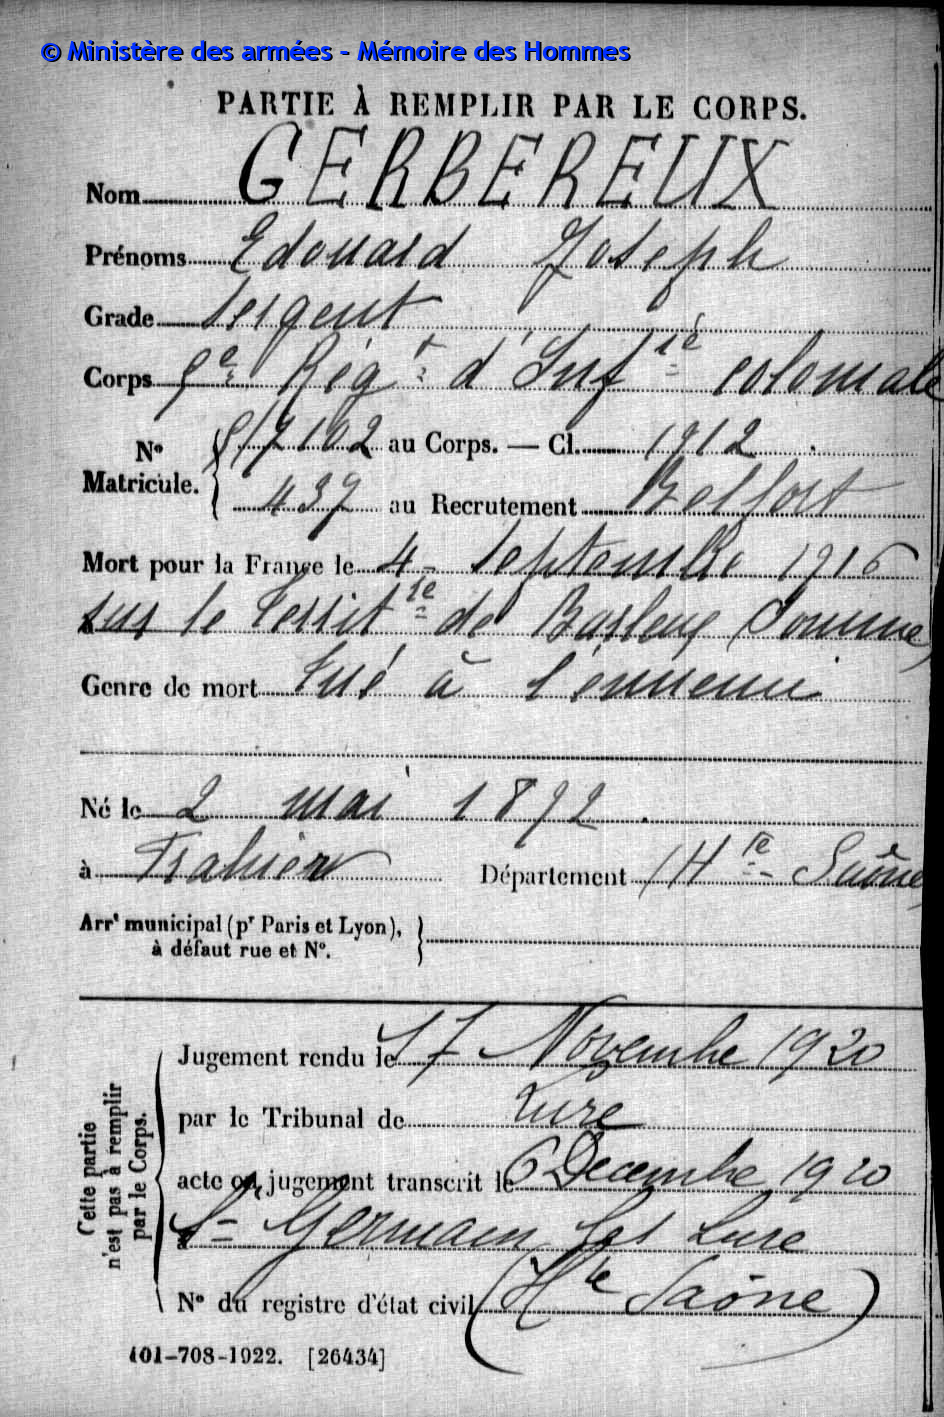 © Ministère des armées - Mémoire des Hommes
PARTIE À REMPLIR PAR LE CORPS.
Nom GERBEREUX
Prénoms Edouard Joseph
Grade Sergent
Corps 5e Régt d'Infie coloniale
No Matricule. 517102 au Corps. — Cl. 1912
437 au Recrutement Belfort
Mort pour la France le 4 Septembre 1916
sur le Territre de Barleux (Somme)
Genre de mort tué à l'ennemi
Né le 2 mai 1892.
à Frahier Département Hte Saône
Arrt municipal (pr Paris et Lyon),
à défaut rue et No.
Cette partie n'est pas à remplir par le Corps.
Jugement rendu le 17 Novembre 1920
par le Tribunal de Lure
acte ou jugement transcrit le 6 Décembre 1920
à St Germain les Lure
No du registre d'état civil (Hte Saône)
101-708-1922. [26434]